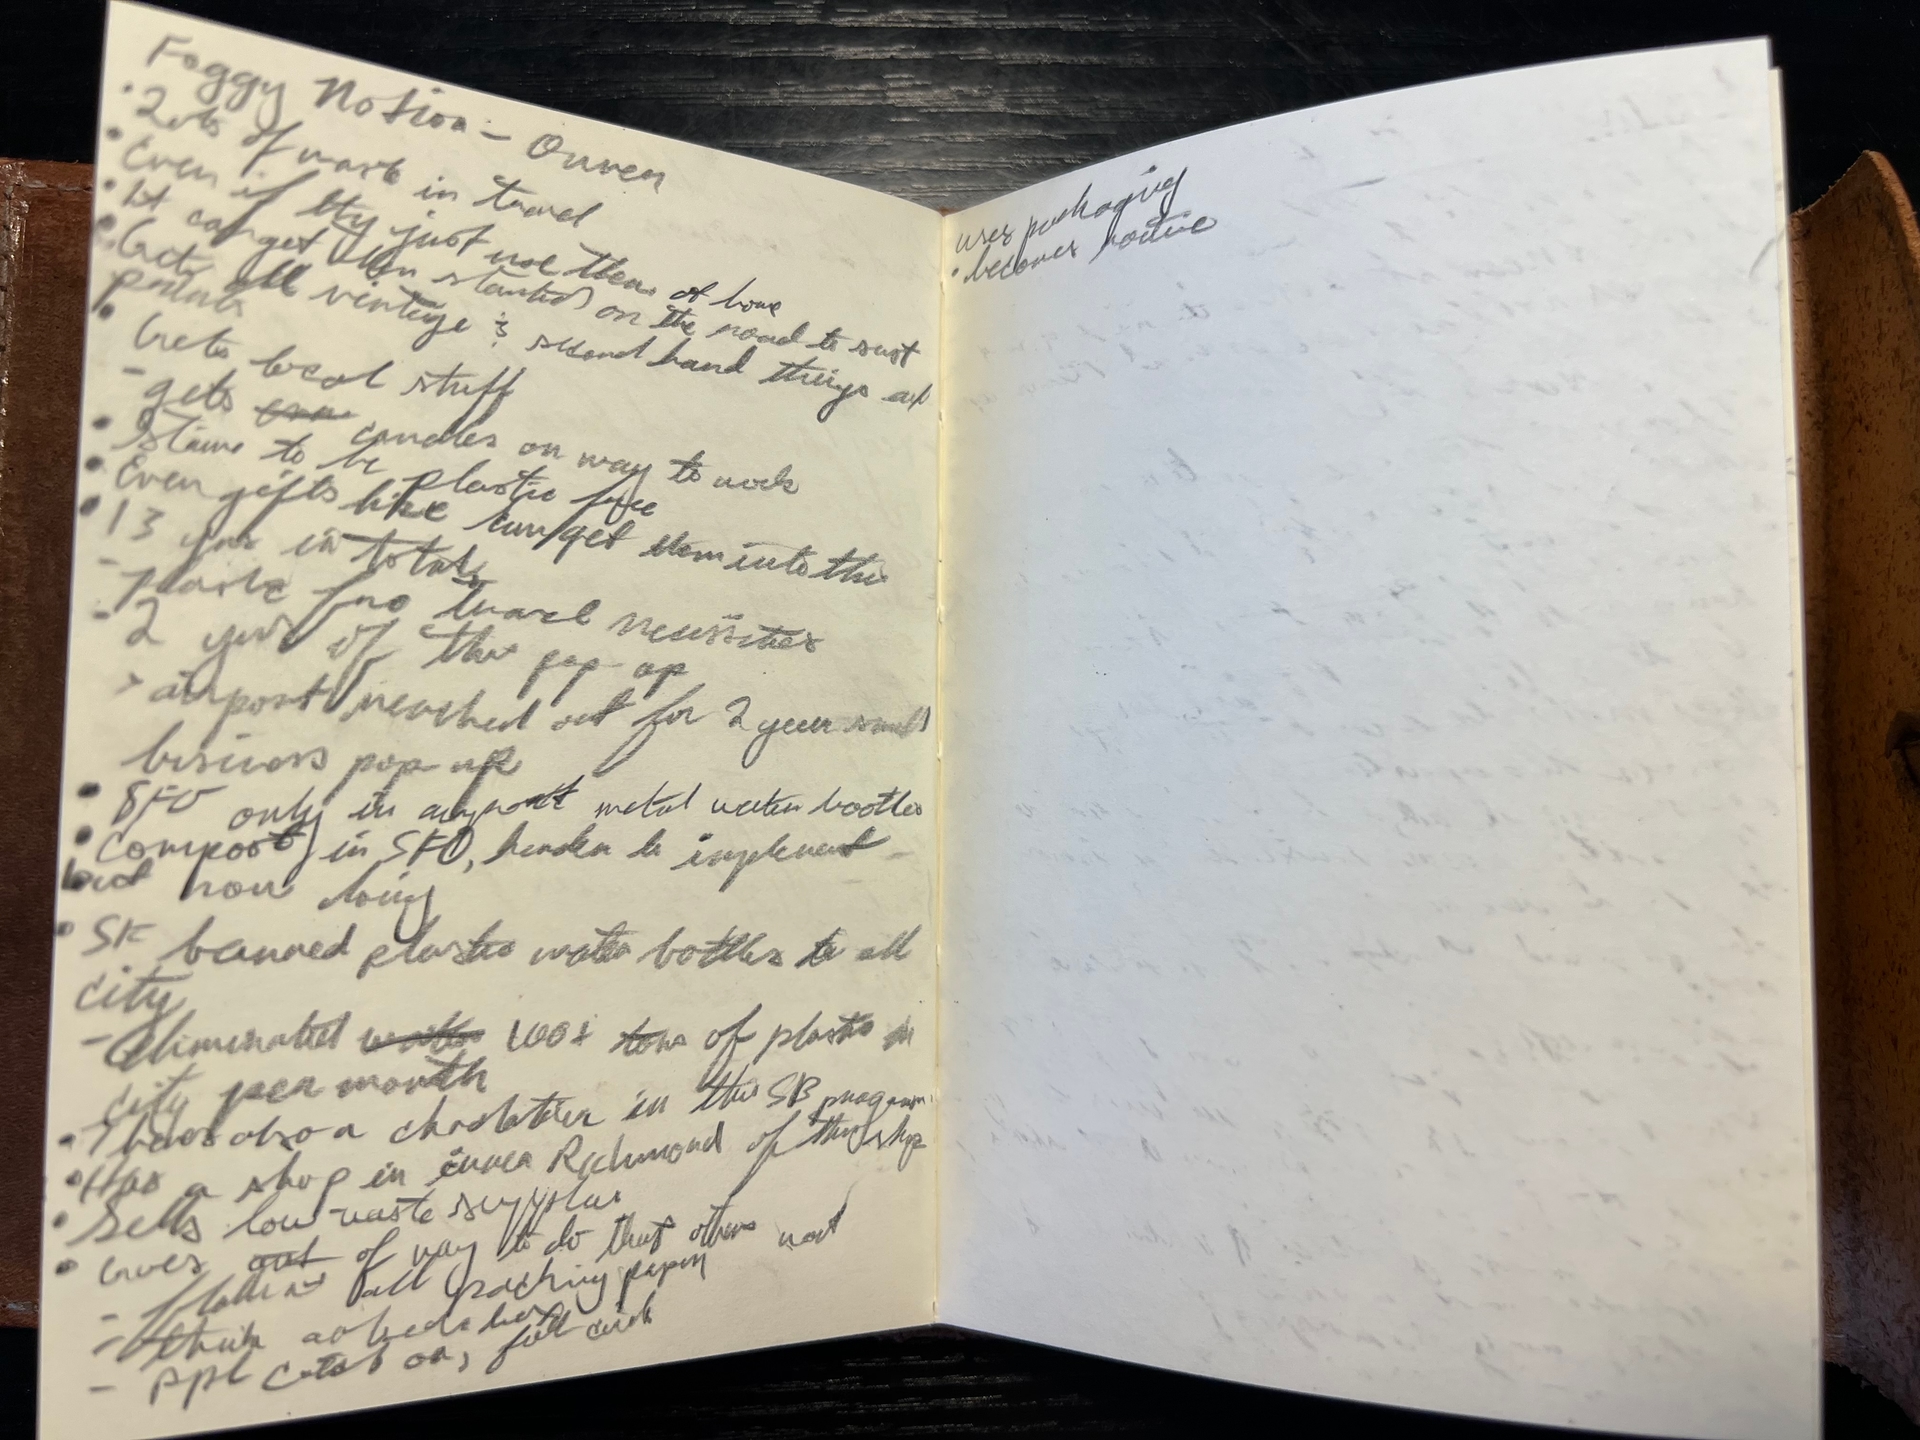 Foggy Notion - Owner
• Lots of waste in travel
• Even if they just use them at home
• It can get them started on the road to sust
• Gets all vintage & second hand things and
paints
• Gets local stuff
- gets candles on way to work
• Strive to be plastic free
• Even gifts like can get them into this
• 13 yrs in total
- plastic free travel necessities
- 2 years of this pop up
> airport reached out for 2 year small
business pop up
• SFO only in airport metal water bootles
• Compost in SFO, harder to implement
but now doing
• SF banned plastic water bottles to all
city
- Eliminated 100+ tons of plastic in
city per month
• Theres also a chocolatier in this SB program
• Has a shop in inner Richmond of this shop
• Sells low-waste supplies
• Goes out of way to do that others not
- all packing paper
- think ahead
- ppl catch on, full circle
uses packaging
• becomes routine